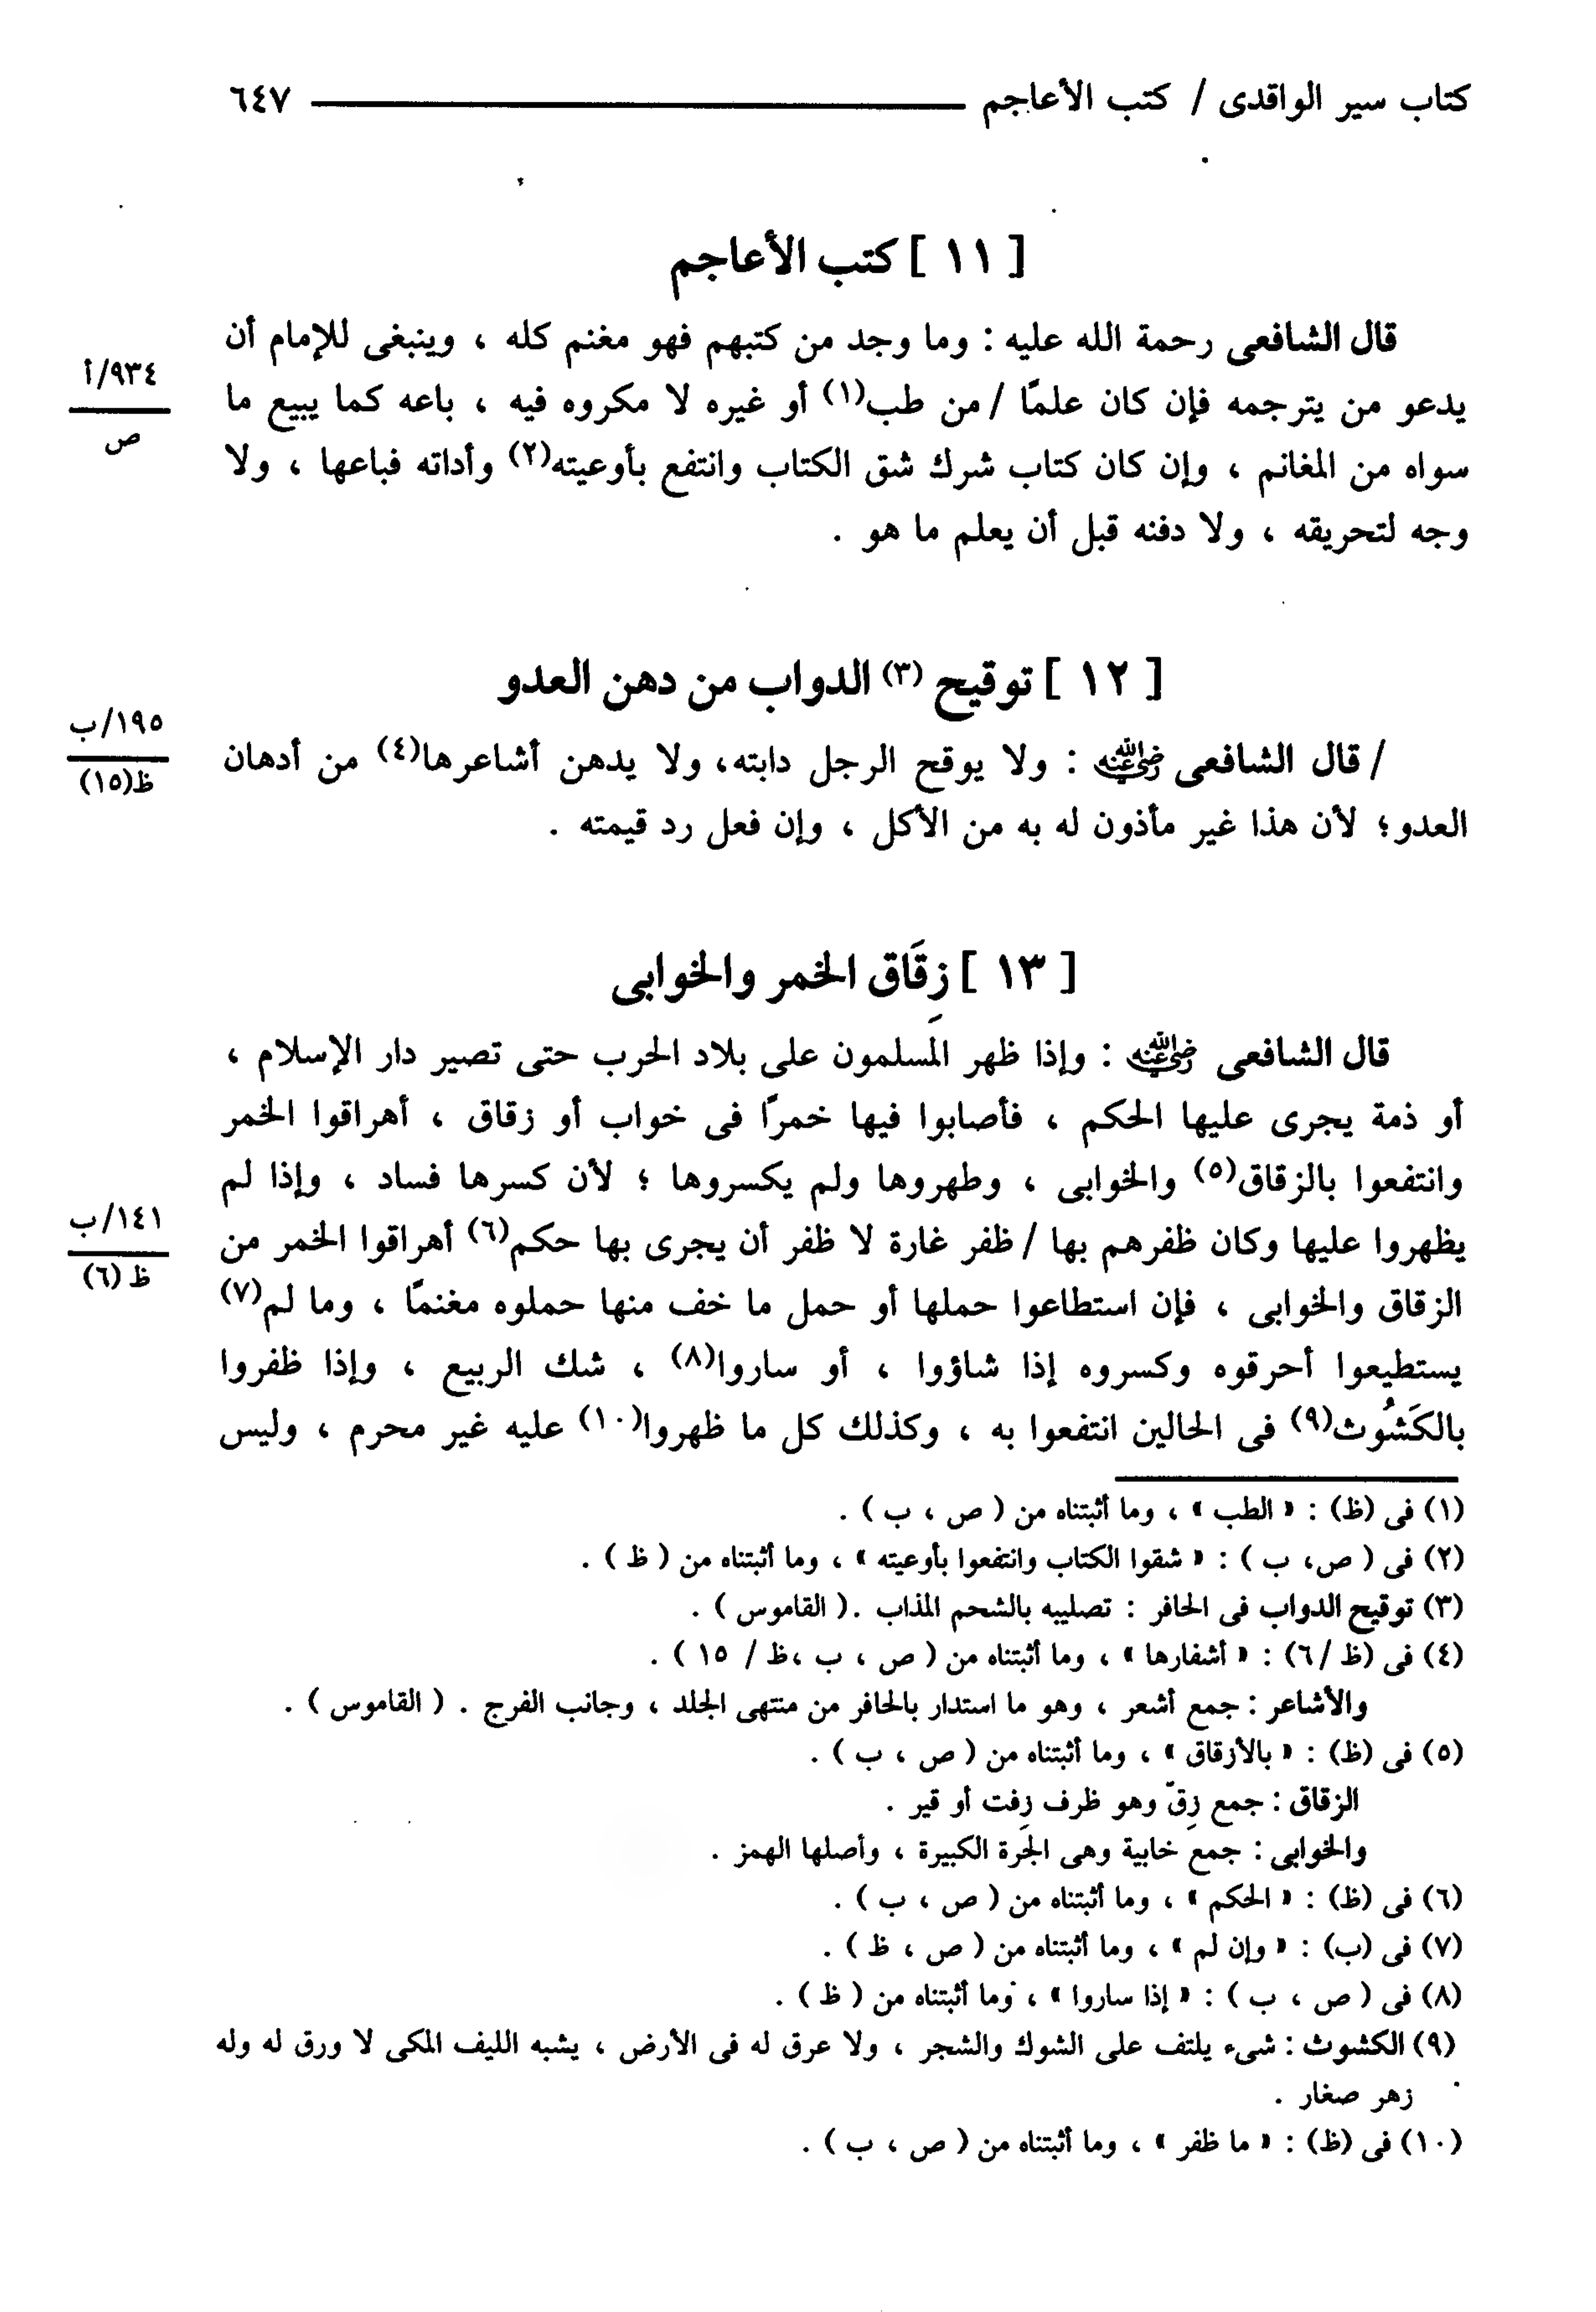 كتاب سير الواقدى / كتب الأعاجم ٦٤٧
[ ١١ ] كتب الأعاجم
قال الشافعى رحمة الله عليه : وما وجد من كتبهم فهو مغنم كله ، وينبغى للإمام أن
٩٣٤/أ
ص
يدعو من يترجمه فإن كان علمًا / من طب(١) أو غيره لا مكروه فيه ، باعه كما يبيع ما
سواه من المغانم ، وإن كان كتاب شرك شق الكتاب وانتفع بأوعيته(٢) وأداته فباعها ، ولا
وجه لتحريقه ، ولا دفنه قبل أن يعلم ما هو .
[ ١٢ ] توقيح (٣) الدواب من دهن العدو
١٩٥/ب
ظ(١٥)
/ قال الشافعى رضي الله عنه : ولا يوقح الرجل دابته، ولا يدهن أشاعرها(٤) من أدهان
العدو؛ لأن هذا غير مأذون له به من الأكل ، وإن فعل رد قيمته .
[ ١٣ ] زِقَاق الخمر والخوابى
قال الشافعى رضي الله عنه : وإذا ظهر المسلمون على بلاد الحرب حتى تصير دار الإسلام ،
أو ذمة يجرى عليها الحكم ، فأصابوا فيها خمرًا فى خواب أو زقاق ، أهراقوا الخمر
وانتفعوا بالزقاق(٥) والخوابى ، وطهروها ولم يكسروها ؛ لأن كسرها فساد ، وإذا لم
١٤١/ب
ظ (٦)
يظهروا عليها وكان ظفرهم بها / ظفر غارة لا ظفر أن يجرى بها حكم(٦) أهراقوا الخمر من
الزقاق والخوابى ، فإن استطاعوا حملها أو حمل ما خف منها حملوه مغنمًا ، وما لم(٧)
يستطيعوا أحرقوه وكسروه إذا شاؤوا ، أو ساروا(٨) ، شك الربيع ، وإذا ظفروا
بالكَشُوث(٩) فى الحالين انتفعوا به ، وكذلك كل ما ظهروا(١٠) عليه غير محرم ، وليس
(١) فى (ظ) : « الطب » ، وما أثبتناه من ( ص ، ب ) .
(٢) فى ( ص، ب ) : « شقوا الكتاب وانتفعوا بأوعيته » ، وما أثبتناه من ( ظ ) .
(٣) توقيح الدواب فى الحافر : تصليبه بالشحم المذاب .( القاموس ) .
(٤) فى (ظ /٦) : « أشفارها » ، وما أثبتناه من ( ص ، ب ،ظ / ١٥ ) .
والأشاعر : جمع أشعر ، وهو ما استدار بالحافر من منتهى الجلد ، وجانب الفرج . ( القاموس ) .
(٥) فى (ظ) : « بالأزقاق » ، وما أثبتناه من ( ص ، ب ) .
الزقاق : جمع زِقّ وهو ظرف زِفت أو قير .
والخوابى : جمع خابية وهى الجَرة الكبيرة ، وأصلها الهمز .
(٦) فى (ظ) : « الحكم » ، وما أثبتناه من ( ص ، ب ) .
(٧) فى (ب) : « وإن لم » ، وما أثبتناه من ( ص ، ظ ) .
(٨) فى ( ص ، ب ) : « إذا ساروا » ، وما أثبتناه من ( ظ ) .
(٩) الكشوث : شىء يلتف على الشوك والشجر ، ولا عرق له فى الأرض ، يشبه الليف المكى لا ورق له وله
زهر صغار .
(١٠) فى (ظ) : « ما ظفر » ، وما أثبتناه من ( ص ، ب ) .